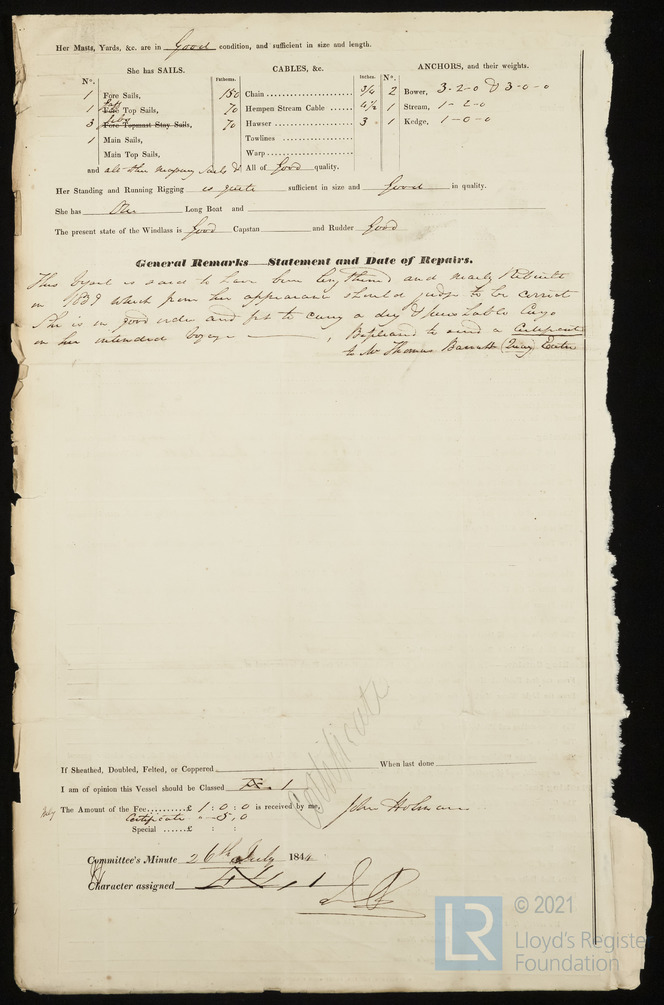 Her Masts, Yards, &c. are in Good condition, and sufficient in size and length.
She has SAILS. CABLES, &c. ANCHORS, and their weights.
N°. Fathoms. Inches. N°.
1 Fore Sails, 150 Chain 3/4 2 Bower, 3-2-0 & 3-0-0
1 Fore Top Sails, 70 Hempen Stream Cable 4½ 1 Stream, 1-2-0
3 Fore Topmast Stay Sails, 70 Hawser 3 1 Kedge, 1-0-0
1 Main Sails, Towlines
Main Top Sails, Warp
and all other necessary Sails & All of good quality.
Her Standing and Running Rigging is quite sufficient in size and Good in quality.
She has One Long Boat and
The present state of the Windlass is Good Capstan and Rudder Good
General Remarks Statement and Date of Repairs.
This Vessel is said to have been lengthened and nearly Rebuilt
in 1839 which from her appearance I should judge to be correct
She is in good order and fit to carry a dry & Cargo
on her intended Voyage , to send a Certificate
to Mr Thomas Barratt (Quay) Exeter
certificate
If Sheathed, Doubled, Felted, or Coppered When last done
I am of opinion this Vessel should be Classed Æ 1
The Amount of the Fee £ 1 : 0 : 0 is received by me, John Holman
Certificate " - 5 . 0
Special £ : :
Committee's Minute 26th July 1844
Character assigned Æ 1
LR © 2021
Lloyd's Register
Foundation